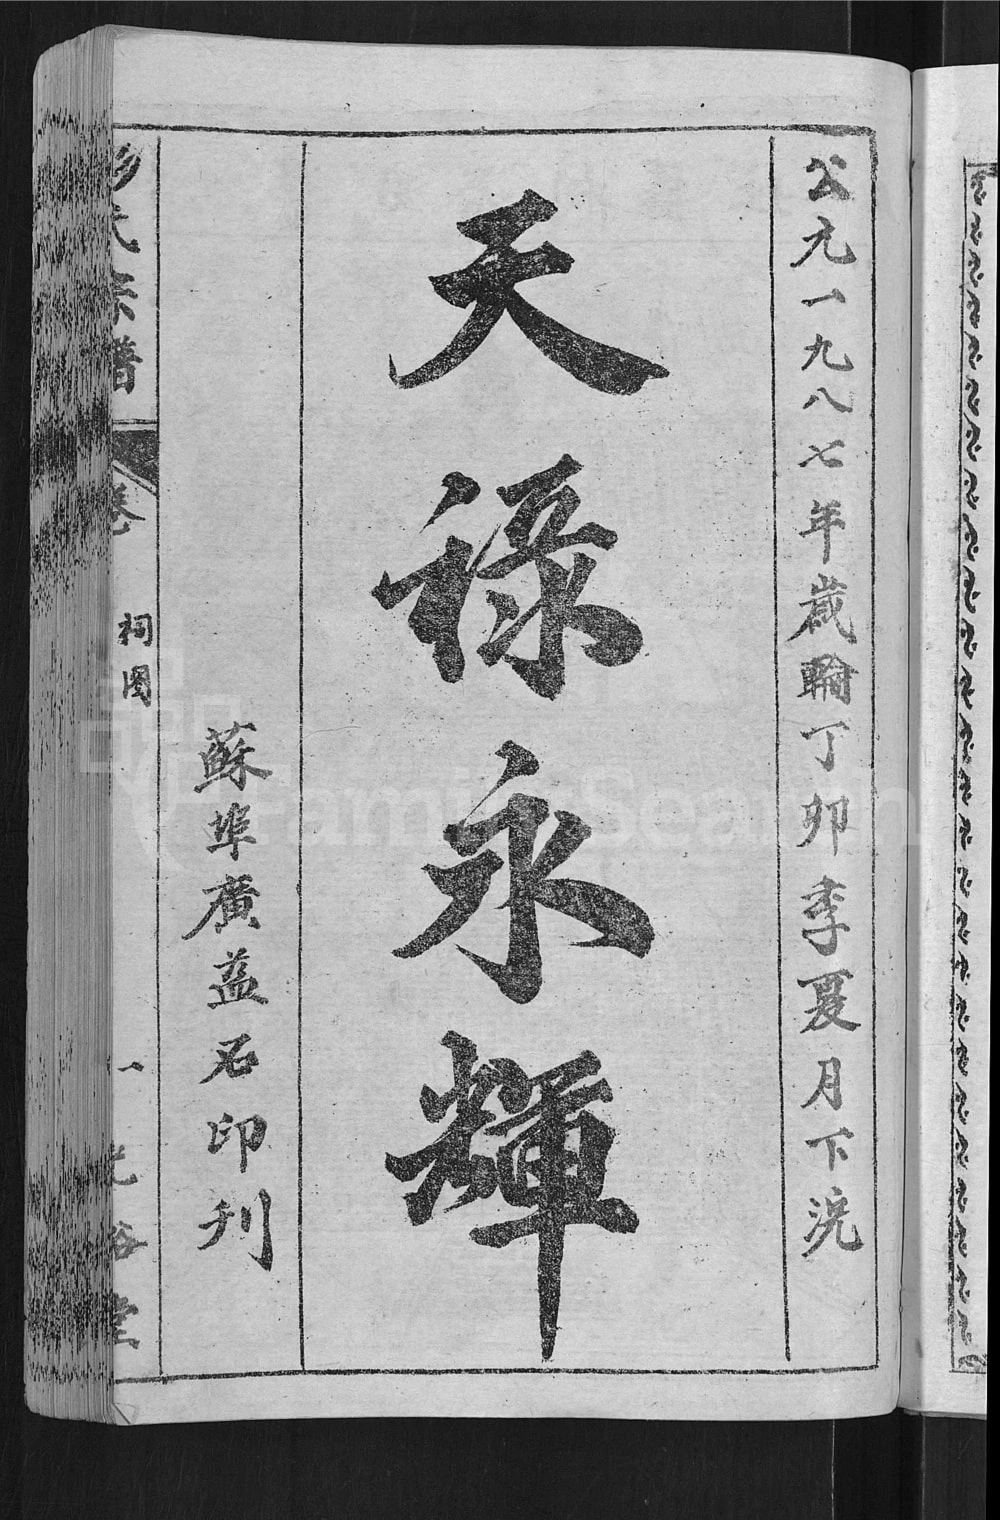 公元一九八七年歲輪丁卯季夏月下浣
天祿永輝
蘇埠廣益石印刊
氏宗譜
卷
祠図
一
光裕堂
FamilySearch